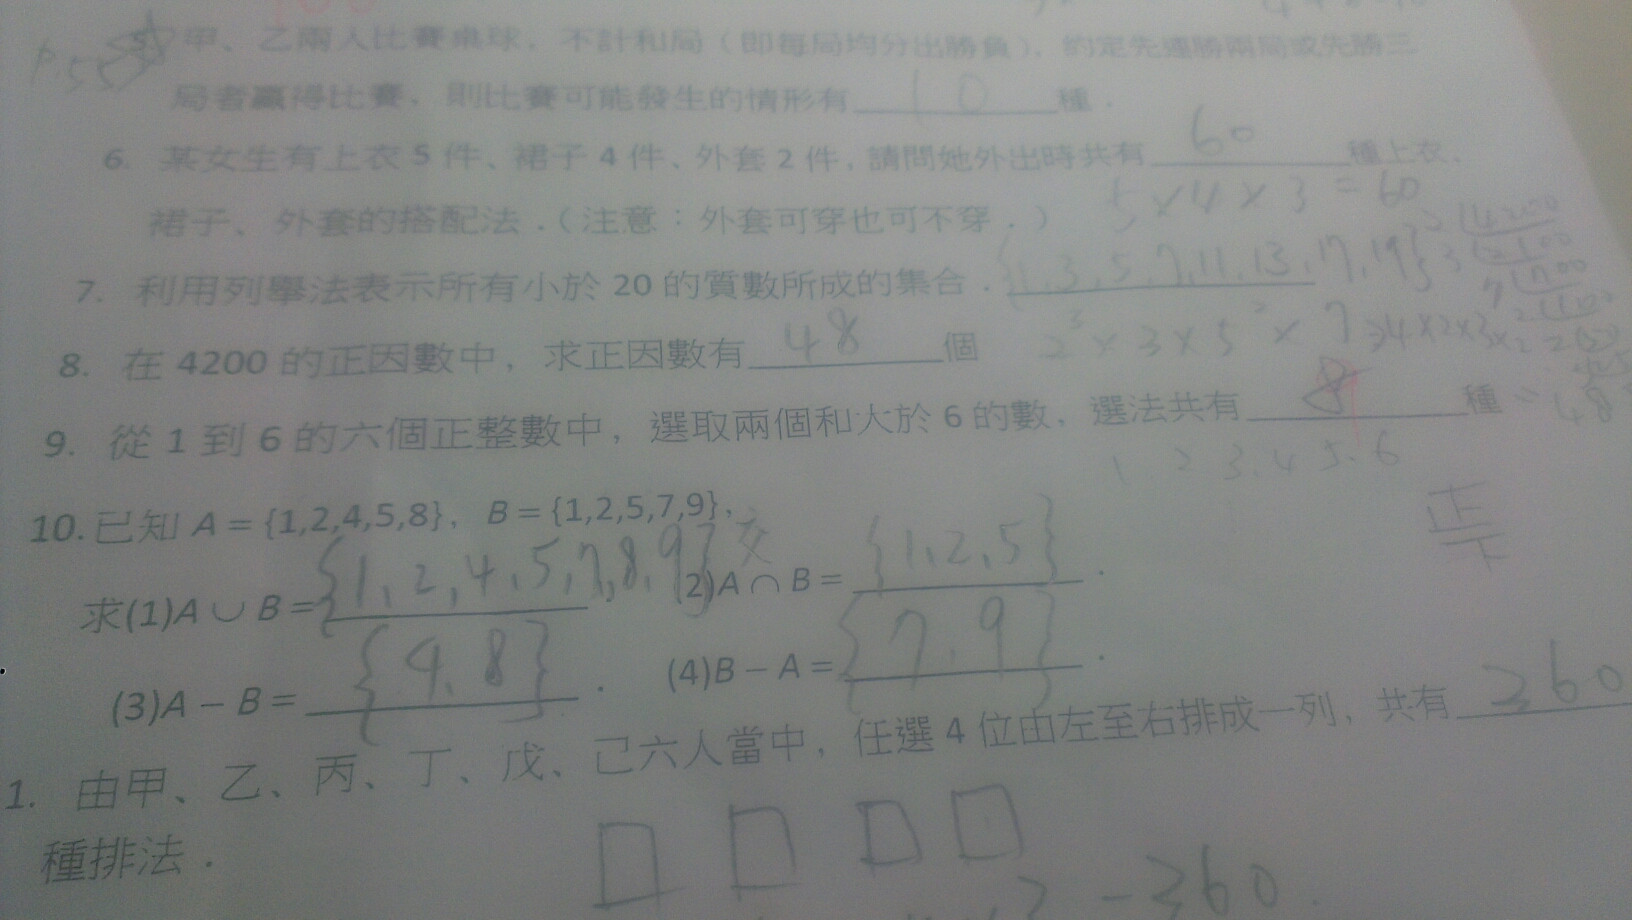 p.55
甲、乙兩人比賽桌球，不計和局（即每局均分出勝負），約定先連勝兩局或先勝三
局者贏得比賽，則比賽可能發生的情形有 10 種．
6. 某女生有上衣 5 件、裙子 4 件、外套 2 件，請問她外出時共有 60 種上衣、
裙子、外套的搭配法．（注意：外套可穿也可不穿．）
5×4×3=60
7. 利用列舉法表示所有小於 20 的質數所成的集合． {1,3,5,7,11,13,17,19}
8. 在 4200 的正因數中，求正因數有 48 個
2³×3×5²×7
=48
9. 從 1 到 6 的六個正整數中，選取兩個和大於 6 的數，選法共有 8 種
1 2 3.4 5.6
正
10.已知 A＝{1,2,4,5,8}，B＝{1,2,5,7,9}，
求(1)A∪B＝{1,2,4,5,7,8,9}． 交 (2)A∩B＝{1,2,5}．
(3)A－B＝{4,8}． (4)B－A＝{7,9}．
1. 由甲、乙、丙、丁、戊、己六人當中，任選 4 位由左至右排成一列，共有 360
種排法．
360